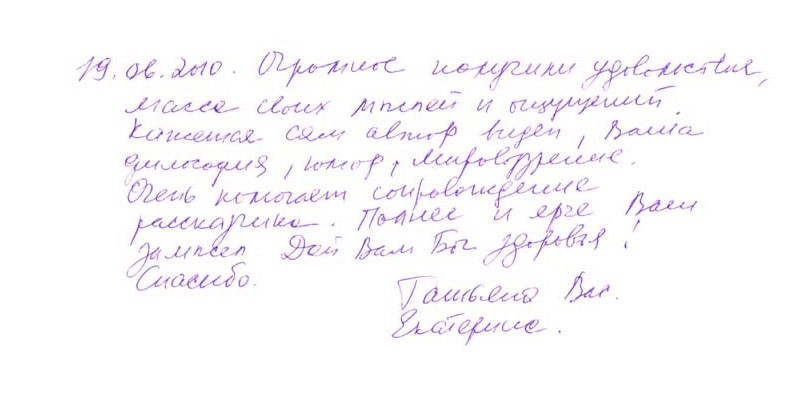 19.06.2010. Огромное получили удовольствие,
масса своих мыслей и ощущений.
Кажется сам автор виден, Ваша
философия, юмор, мировоззрение.
Очень помогает сопровождение
рассказчика. Полнее и ярче Ваш
замысел. Дай Вам Бог здоровья!
Спасибо.
Татьяна Вас.
Екатерина.